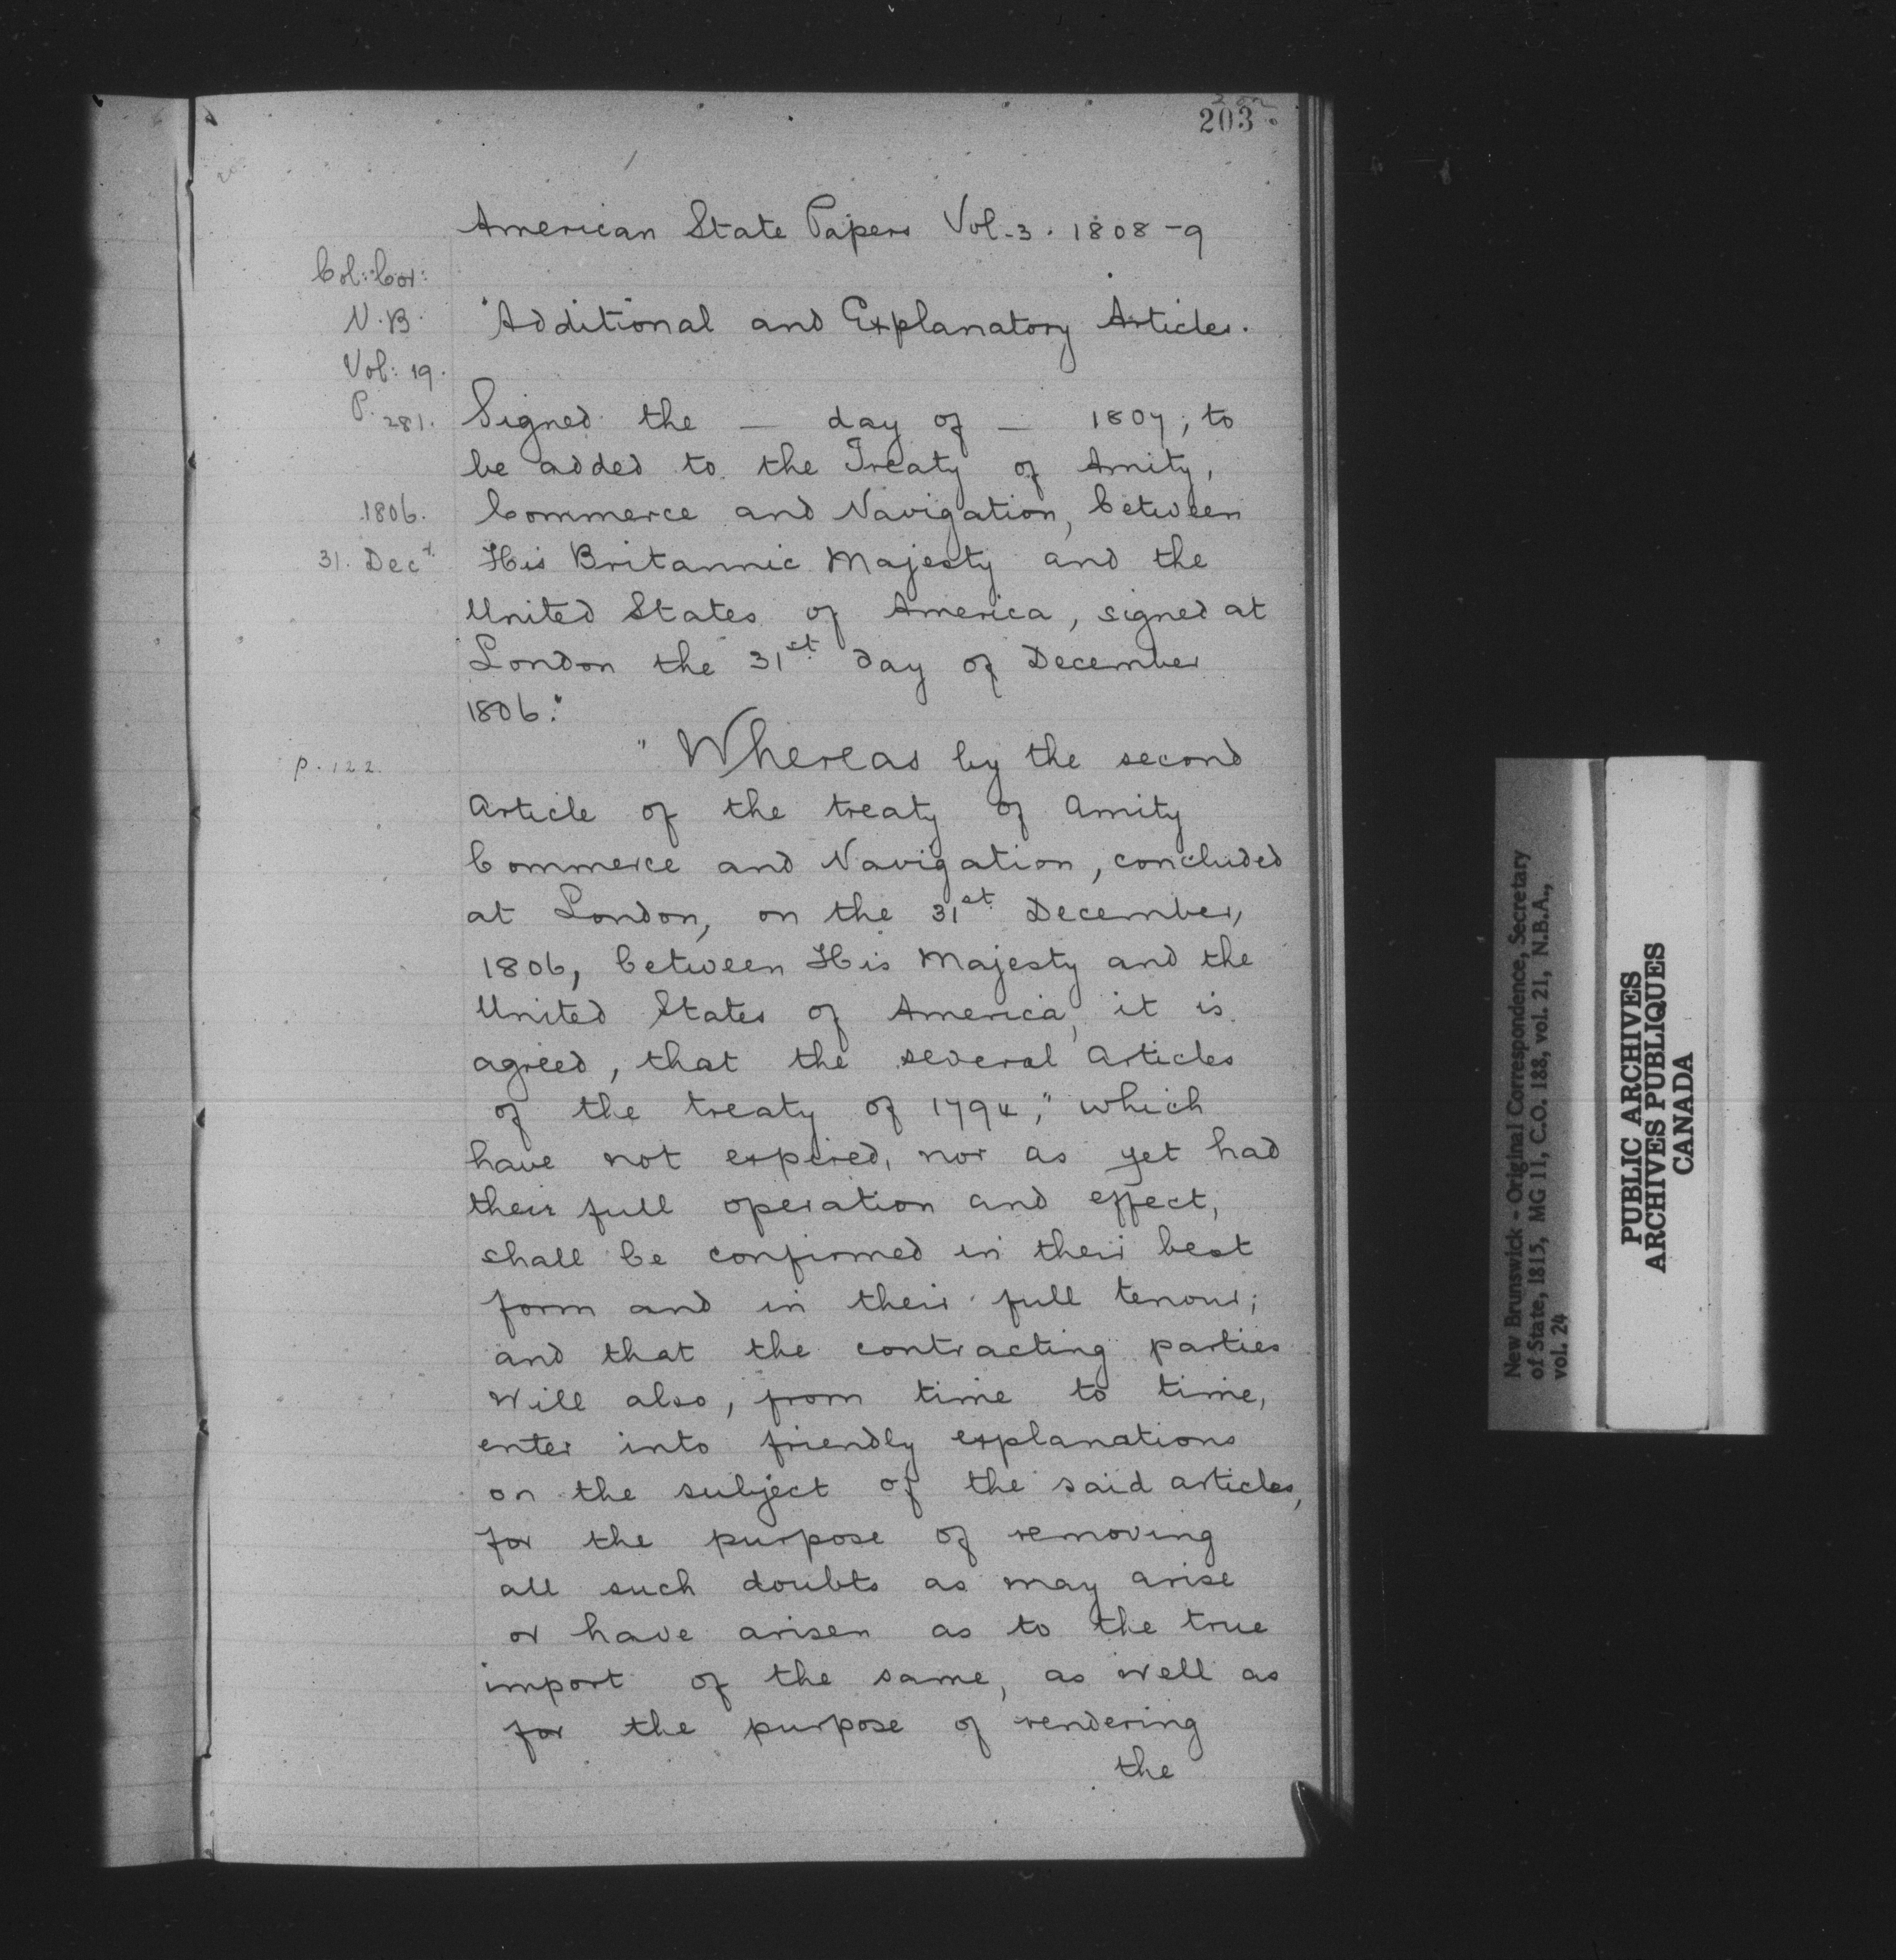 203
American State Papers Vol. 3. 1808-9
Col: Cor:
N.B.
Vol: 19.
P. 281.
"Additional and Explanatory Articles.
Signed the — day of — 1807; to
be added to the Treaty of Amity,
1806.
31. Decr.
Commerce and Navigation, between
His Britannic Majesty and the
United States of America, signed at
London the 31st day of December
1806."
p. 122.
"Whereas by the second
Article of the treaty of Amity
Commerce and Navigation, concluded
at London, on the 31st December,
1806, between His Majesty and the
United States of America, it is
agreed, that the several Articles
of the treaty of 1794," which
have not expired, nor as yet had
their full operation and effect,
shall be confirmed in their best
form and in their full tenour;
and that the contracting parties
will also, from time to time,
enter into friendly explanations
on the subject of the said articles,
for the purpose of removing
all such doubts as may arise
or have arisen as to the true
import of the same, as well as
for the purpose of rendering
the
New Brunswick - Original Correspondence, Secretary
of State, 1815, MG 11, C.O. 188, vol. 21, N.B.A.,
vol. 24
PUBLIC ARCHIVES
ARCHIVES PUBLIQUES
CANADA